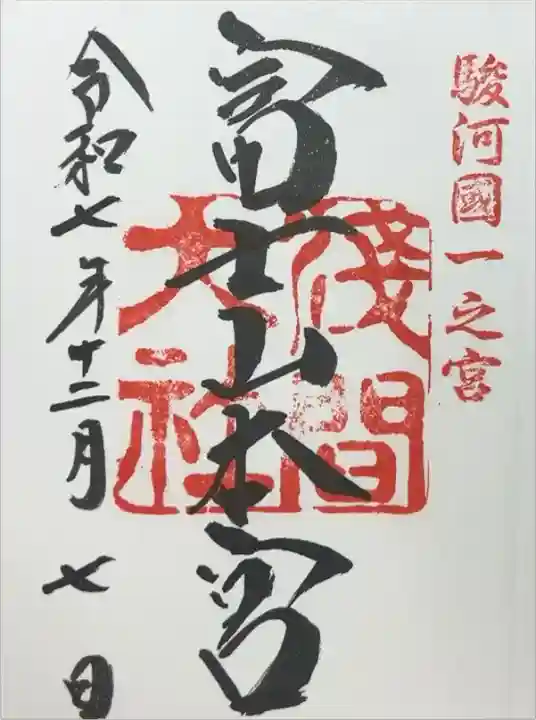 駿河國一之宮
富士山本宮
淺間大社
令和七年十二月七日